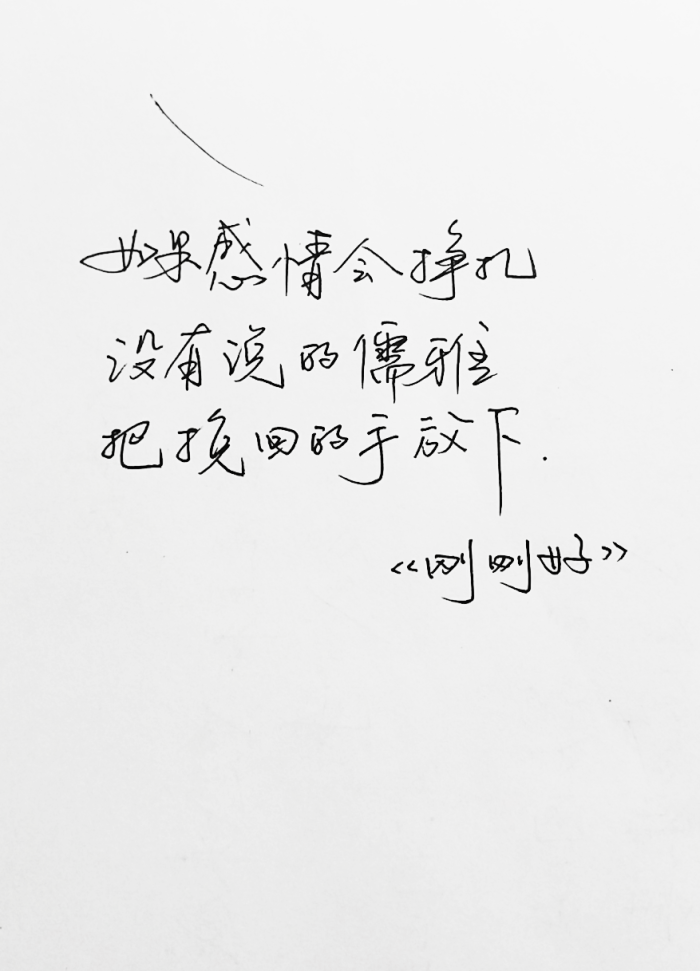 如果感情会挣扎
没有说的儒雅
把挽回的手放下.
《刚刚好》